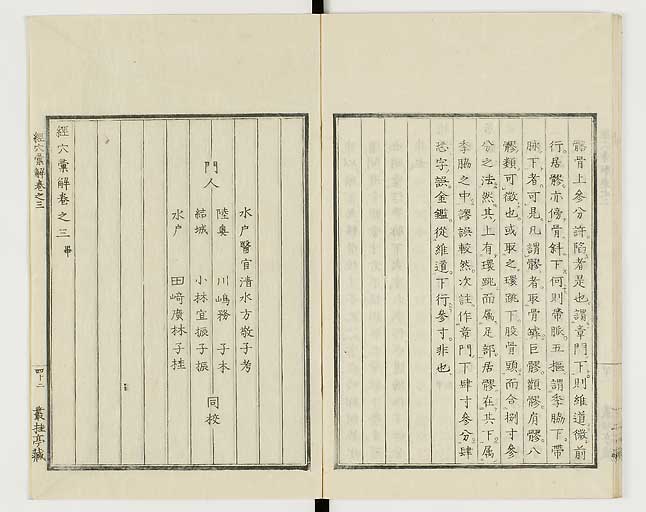 髂骨上參分許陷者是也謂章門下則維道微前
行居髎亦傍骨斜下何則帶脈五樞謂季脇下帶
脉下者可是凡謂髎者取骨罅巨髎顴髎肩髎八
髎類可徵也或取之環跳下股骨頭而合捌寸參
分之法然其上有環跳而屬足部居髎在其下屬
季脇之中謬誤較然次註作章門下肆寸參分肆
恐字誤金鑑從維道下行參寸非也
水戶醫官清水方敬子考
門人
陸奧 川嶋務 子本
結城 小林宜振子振
水戶 田﨑廣林子桂
同校
經穴彙解卷之三畢
經穴彙解卷之三
四十二
叢桂亭藏